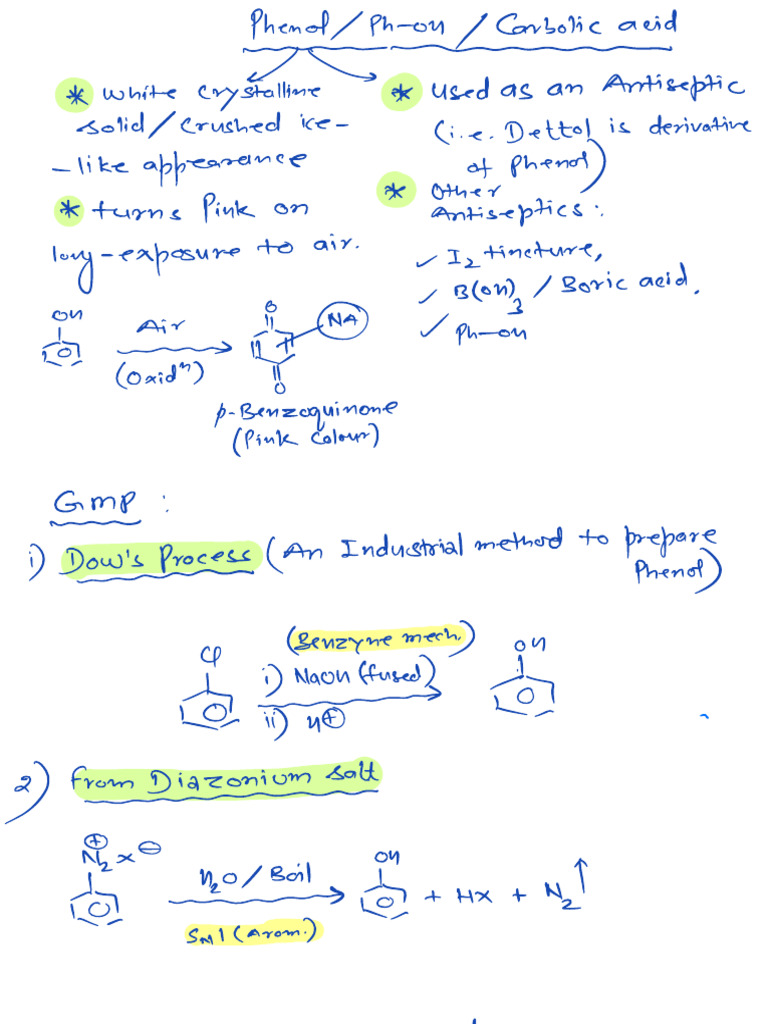 Phenol / Ph-OH / Carbolic acid
* White Crystalline
solid / Crushed ice-
-like appearance
* turns Pink on
long-exposure to air.
* used as an Antiseptic
(i.e. Dettol is derivative
of Phenol)
* Other
Antiseptics:
✓ I2 tincture,
✓ B(OH)3 / Boric acid.
✓ Ph-OH
OH
Air
(Oxidⁿ)
O
NA
O
p-Benzoquinone
(Pink Colour)
GMP :
i) Dow's Process (An Industrial method to prepare
Phenol)
(Benzyne mech.)
Cl
i) NaOH (fused)
ii) H⊕
OH
2) from Diazonium salt
⊕
N2 X ⊖
H2O / Boil
SN1 (Arom.)
OH
+ HX + N2↑